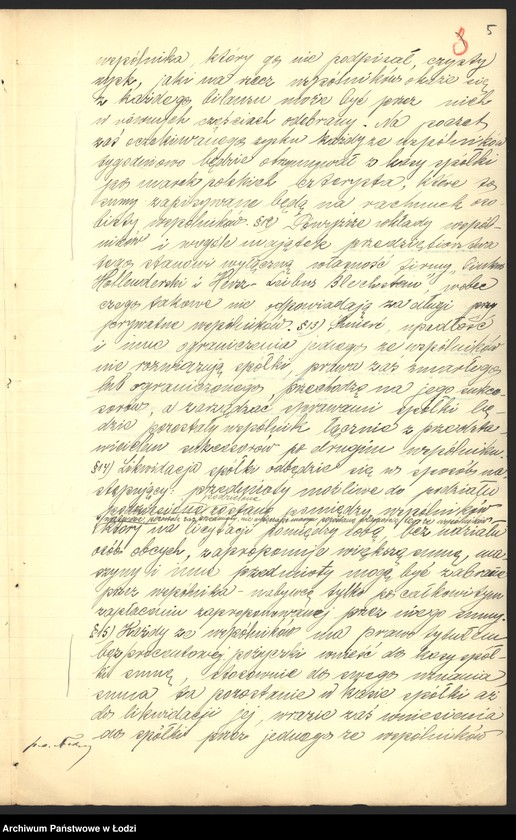 8 5
wspólnika, który go nie podpisał, czysty
zysk, jaki na rzecz wspólników okaże się
z każdego bilansu może być przez nich
w równych częściach odebrany. Na poczet
zaś oczekiwanego zysku każdy ze wspólników
tygodniowo będzie otrzymywał z kasy spółki
po marek polskich czterysta, które to
sumy zapisywane będą na rachunek oso-
bisty wspólników. §12) Powyższe wkłady wspól-
ników i wogóle majątek przedsiębiorstwa
tego stanowi wyłączną własność firmy
Hollenderski i Hersz- Blechstein, wobec
czego takowe nie odpowiadają za długi
prywatne wspólników. §13) Śmierć, upadłość
i inne ograniczenia jednego ze wspólników
nie rozwiązują spółki, prawa zaś zmarłego
lub ograniczonego, przechodzą na jego sukce-
sorów, a zarządzać sprawami spółki bę-
dzie pozostały wspólnik łącznie z przedsta-
wicielem sukcesorów po drugim wspólniku.
§14) Likwidacja spółki odbędzie się w sposób na-
stępujący: przedmioty możliwe do podziału
podzielone zostaną pomiędzy wspólników
który na licytacji pomiędzy sobą bez udziału
osób obcych, zaproponuje większą sumę, ma-
szyny i inne przedmioty mogą być zabrane
przez wspólnika - nabywcę tylko po całkowitym
zapłaceniu zaproponowanej przez niego sumy.
§15) Każdy ze wspólników ma prawo tytułem
bezprocentowej pożyczki wnieść do kasy spół-
ki sumę, stosownie do swego uznania,
suma ta pozostanie w kasie spółki aż
do likwidacji jej, w razie zaś wniesienia
do spółki przez jednego ze wspólników
Archiwum Państwowe w Łodzi